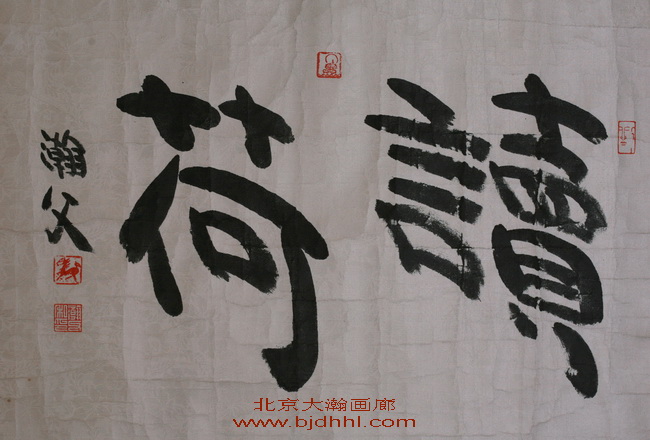 讀荷
瀚父
北京大瀚画廊
www.bjdhhl.com